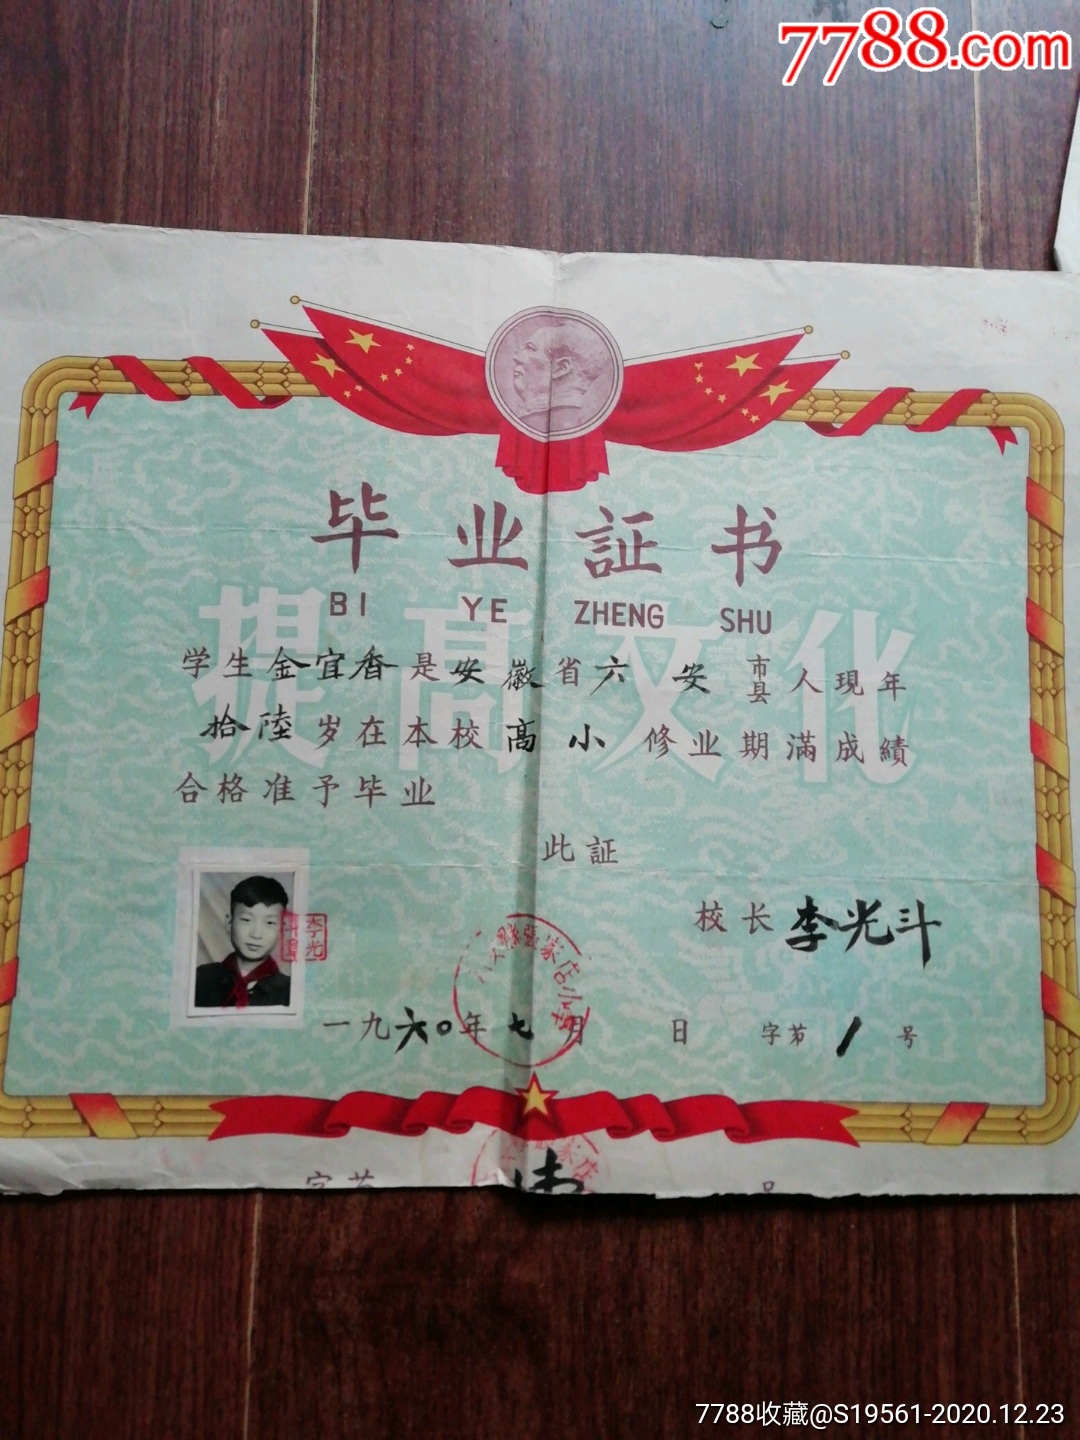 7788.com
毕业証书
BI YE ZHENG SHU
提高文化
学生金宜香是安徽省六安市县人现年
拾陸岁在本校高小修业期滿成績
合格准予毕业
此証
校长李光斗
李光斗
張家店小学
一九六〇年七月 日 字苐1号
字苐 号
7788收藏@S19561-2020.12.23